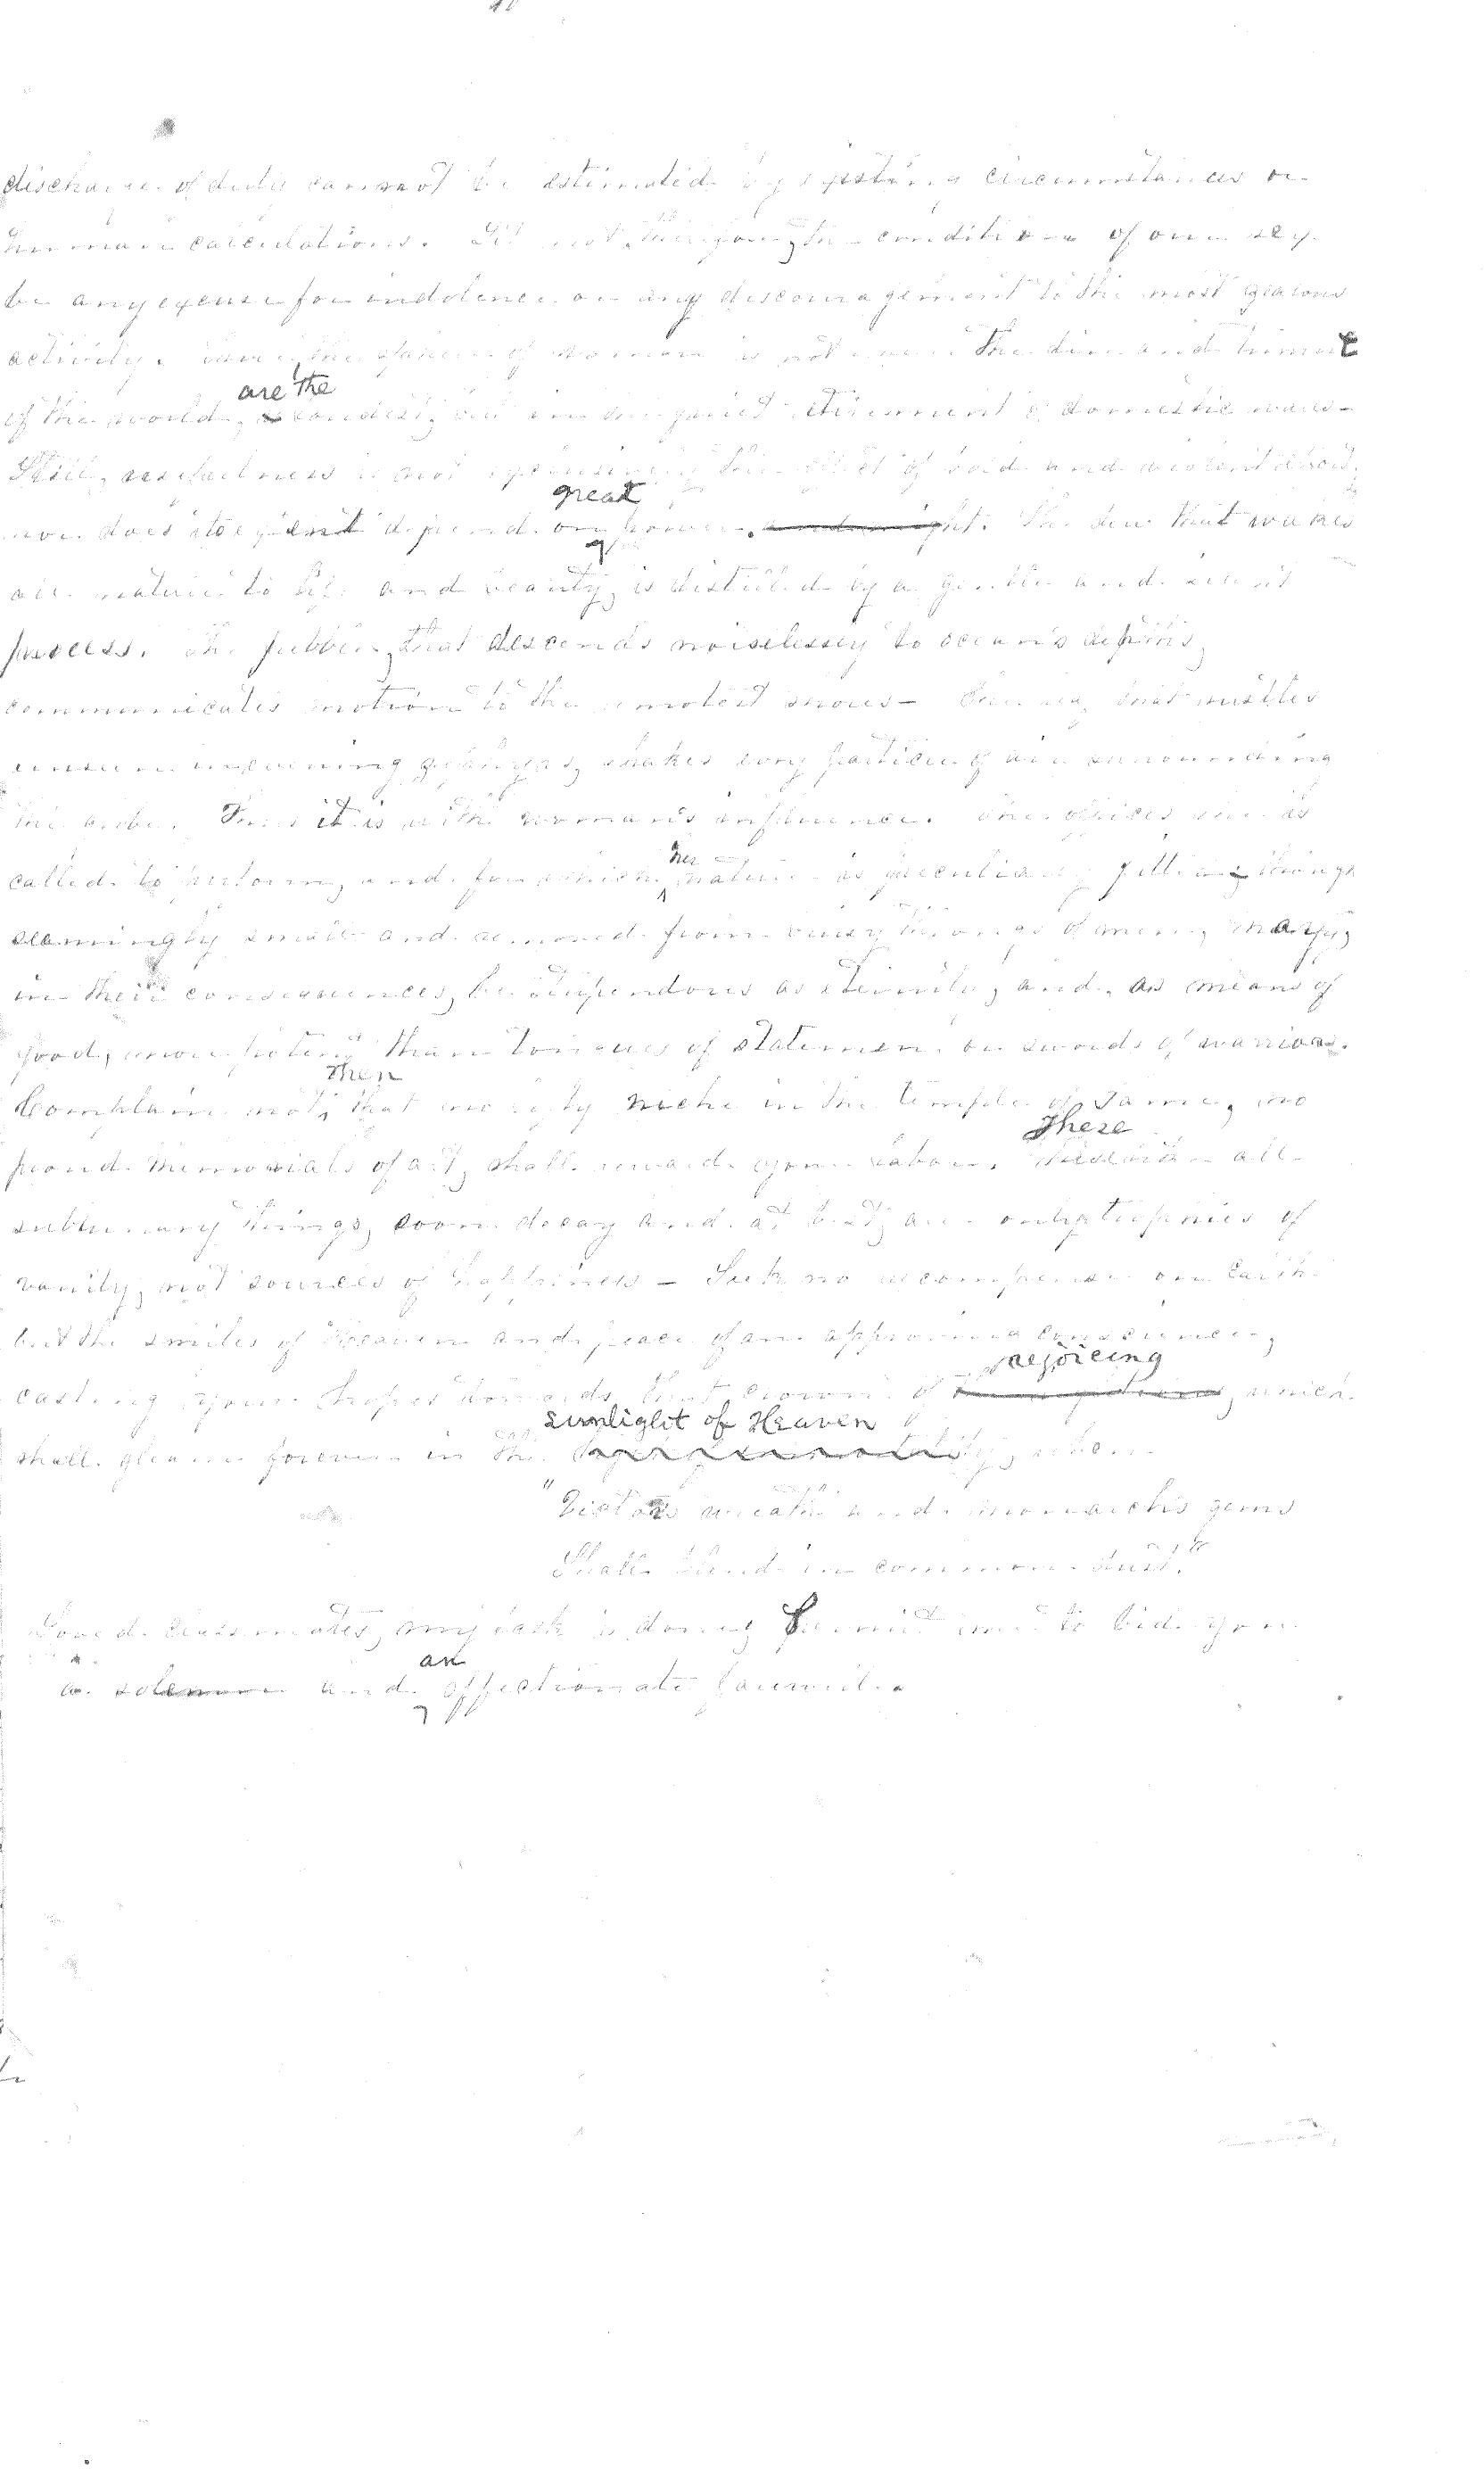 discharge of duty cannot be estimated by existing circumstances or
human calculations. Let not, therefore, the condition of our sex
be any excuse for indolence or any discouragement to the most zealous
activity. True, the sphere of woman is not where the din and tumult
are the
of the world, loudest, but in the quiet retirement of domestic
Still, usefulness is not exclusively the effect of bold and violent
great
nor does its extent depend on power. and might. The dew that wakes
all nature to life and beauty, is distilled by a gentle and silent
process. The pebble, that descends noiselessly to ocean's depths,
communicates motion to the remotest shores - The that rustles
unseen in evening zephyrs, shakes every particle of air surrounding
the globe. Thus it is with woman's influence. The offices she is
her
called to perform, and for which nature is peculiarly fitting though
seemingly small and removed from busy throngs of men, may,
in their consequences, be stupendous as eternity, and, as means of
good, more potent than tongues of statesmen or swords of warriors.
then
Complain not, that no lofty niche in the temple of Fame, no
These
proud memorials of art, shall reward your labor. all
sublunary things, soon decay and at best, are only trophies of
vanity, not sources of happiness - Seek no recompense on Earth
but the smiles of Heaven and peace of an approving conscience,
rejoicing
casting your hopes towards that crown of which
sunlight of Heaven
shall gleam forever in the when
"Victors wreaths and monarchs gems
Shall blend in common dust."
Loved classmates, my task is done, Permit me to bid you
an
a solemn and affectionate farewell.